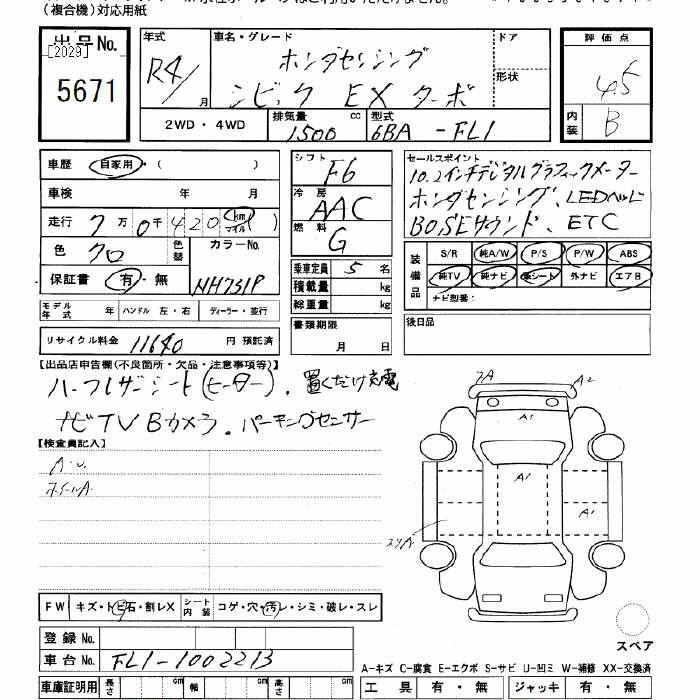 (複合機)対応用紙
出品No. [2029] 5671
年式 R4/ 月
車名・グレード ホンダセンシング
シビック EX ターボ
ドア
形状
評価点 4.5
内装 B
2WD・4WD
排気量 1500 cc
型式 6BA-FL1
車歴 自家用・( )
車検 年 月
走行 7万0千420 km マイル
色 クロ 色替 カラーNo. NH731P
保証書 有・無
モデル年式 年 ハンドル 左・右 ディーラー・並行
リサイクル料金 11640 円 預託済
シフト F6
冷房 AAC
燃料 G
乗車定員 5 名
積載量 kg
総重量 kg
書類期限
月 日
セールスポイント
10.2インチデジタルグラフィックメーター
ホンダセンシング、LEDヘッド
BOSEサウンド、ETC
装備品 S/R 純A/W P/S P/W ABS
純TV 純ナビ 革シート 外ナビ エアB
ナビ型番:
後日品
【出品店申告欄(不良箇所・欠品・注意事項等)】
ハーフレザーシート(ヒーター)、置くだけ充電
ナビTV Bカメラ。パーキングセンサー
【検査員記入】
A・U
ホイールA
7A
A2
A1
A1
A1
スリA
FW キズ・トビ石・割レX シート内装 コゲ・穴・汚レ・シミ・破レ・スレ
登録No.
車台No. FL1-1002213
スペア
A-キズ C-腐食 E-エクボ S-サビ U-凹ミ W-補修 XX-交換済
車庫証明用 長さ cm 幅 cm 高さ cm
工具 有・無 ジャッキ 有・無